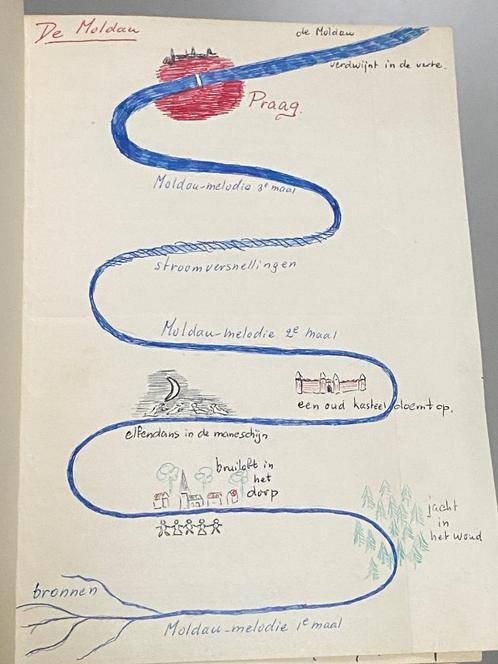 De Moldau
de Moldau
verdwijnt in de verte.
Praag.
Moldau-melodie 3e maal
stroomversnellingen
Moldau-melodie 2e maal
een oud kasteel doemt op.
elfendans in de maneschijn
bruiloft in
het
dorp
jacht
in
het woud
bronnen
Moldau-melodie 1e maal